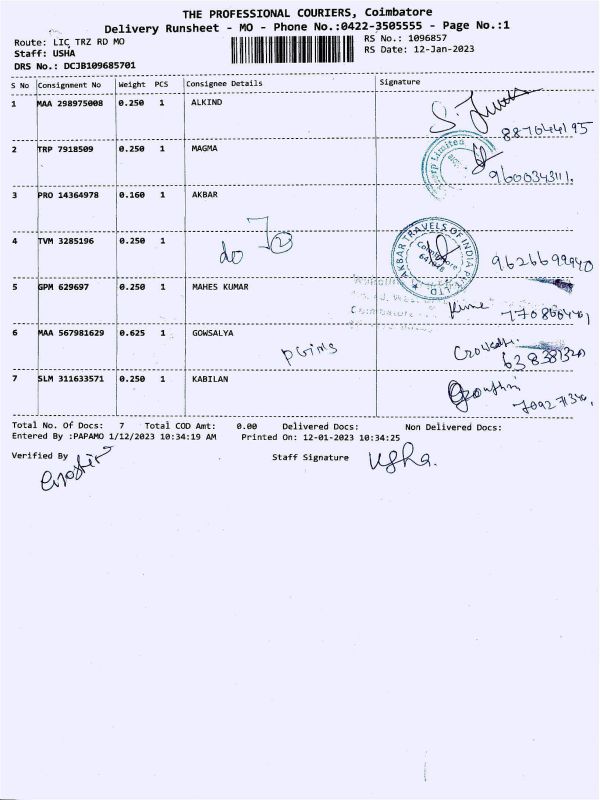 THE PROFESSIONAL COURIERS, Coimbatore
Delivery Runsheet - MO - Phone No.:0422-3505555 - Page No.:1
Route: LIC TRZ RD MO RS No.: 1096857
Staff: USHA RS Date: 12-Jan-2023
DRS No.: DCJB109685701
S No Consignment No Weight PCS Consignee Details Signature
1 MAA 298975008 0.250 1 ALKIND
8876444195
2 TRP 7918509 0.250 1 MAGMA
9600343111.
3 PRO 14364978 0.160 1 AKBAR
AKBAR TRAVELS OF INDIA PVT. LTD.
Coimbatore
4 TVM 3285196 0.250 1 do 2 9626699940
5 GPM 629697 0.250 1 MAHES KUMAR
6 MAA 567981629 0.625 1 GOWSALYA
7 SLM 311633571 0.250 1 KABILAN
Total No. Of Docs: 7 Total COD Amt: 0.00 Delivered Docs: Non Delivered Docs:
Entered By :PAPAMO 1/12/2023 10:34:19 AM Printed On: 12-01-2023 10:34:25
Verified By Staff Signature usha.